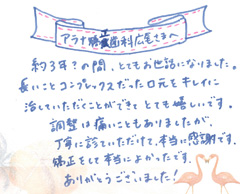 アラナ矯正歯科広尾さまへ
約3年？の間、とてもお世話になりました。
長いことコンプレックスだった口元をキレイに
治していただくことができとても嬉しいです。
調整は痛いこともありましたが、
丁寧に診ていただけて、本当に感謝です。
矯正をして本当によかったです。
ありがとうございました！